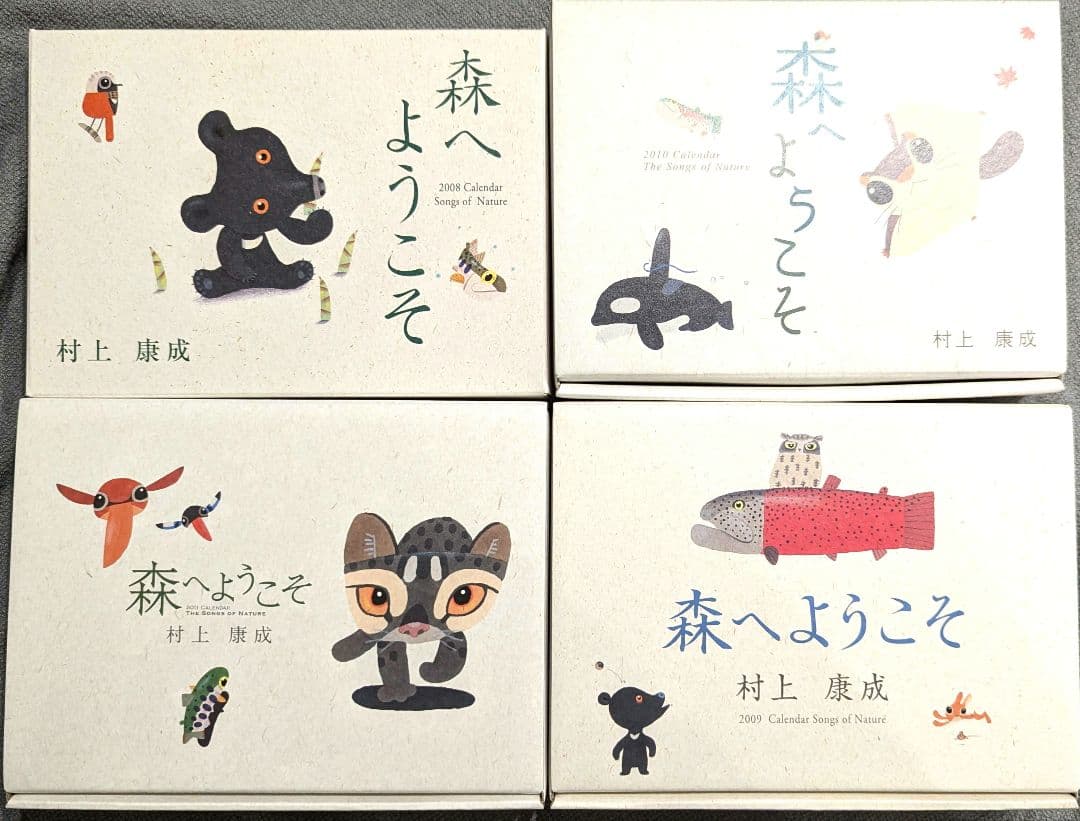 森へ
ようこそ
2008 Calendar
Songs of Nature
村上 康成
森へ
ようこそ
2010 Calendar
The Songs of Nature
村上 康成
森へようこそ
2011 CALENDAR
THE SONGS OF NATURE
村上 康成
森へようこそ
村上 康成
2009 Calendar Songs of Nature